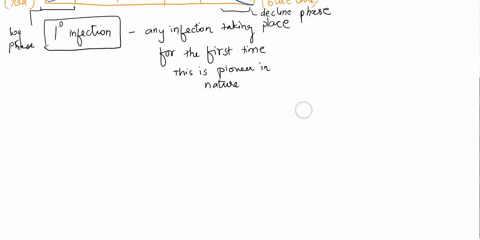 decline phase
log phase
1° infection - any infection taking place
for the first time
this is pioneer in
nature